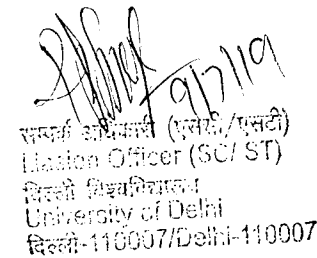 9/7/19
सम्पर्क अधिकारी (एससी/एसटी)
Liasion Officer (SC/ ST)
दिल्ली विश्वविद्यालय
University of Delhi
दिल्ली-110007/Delhi-110007